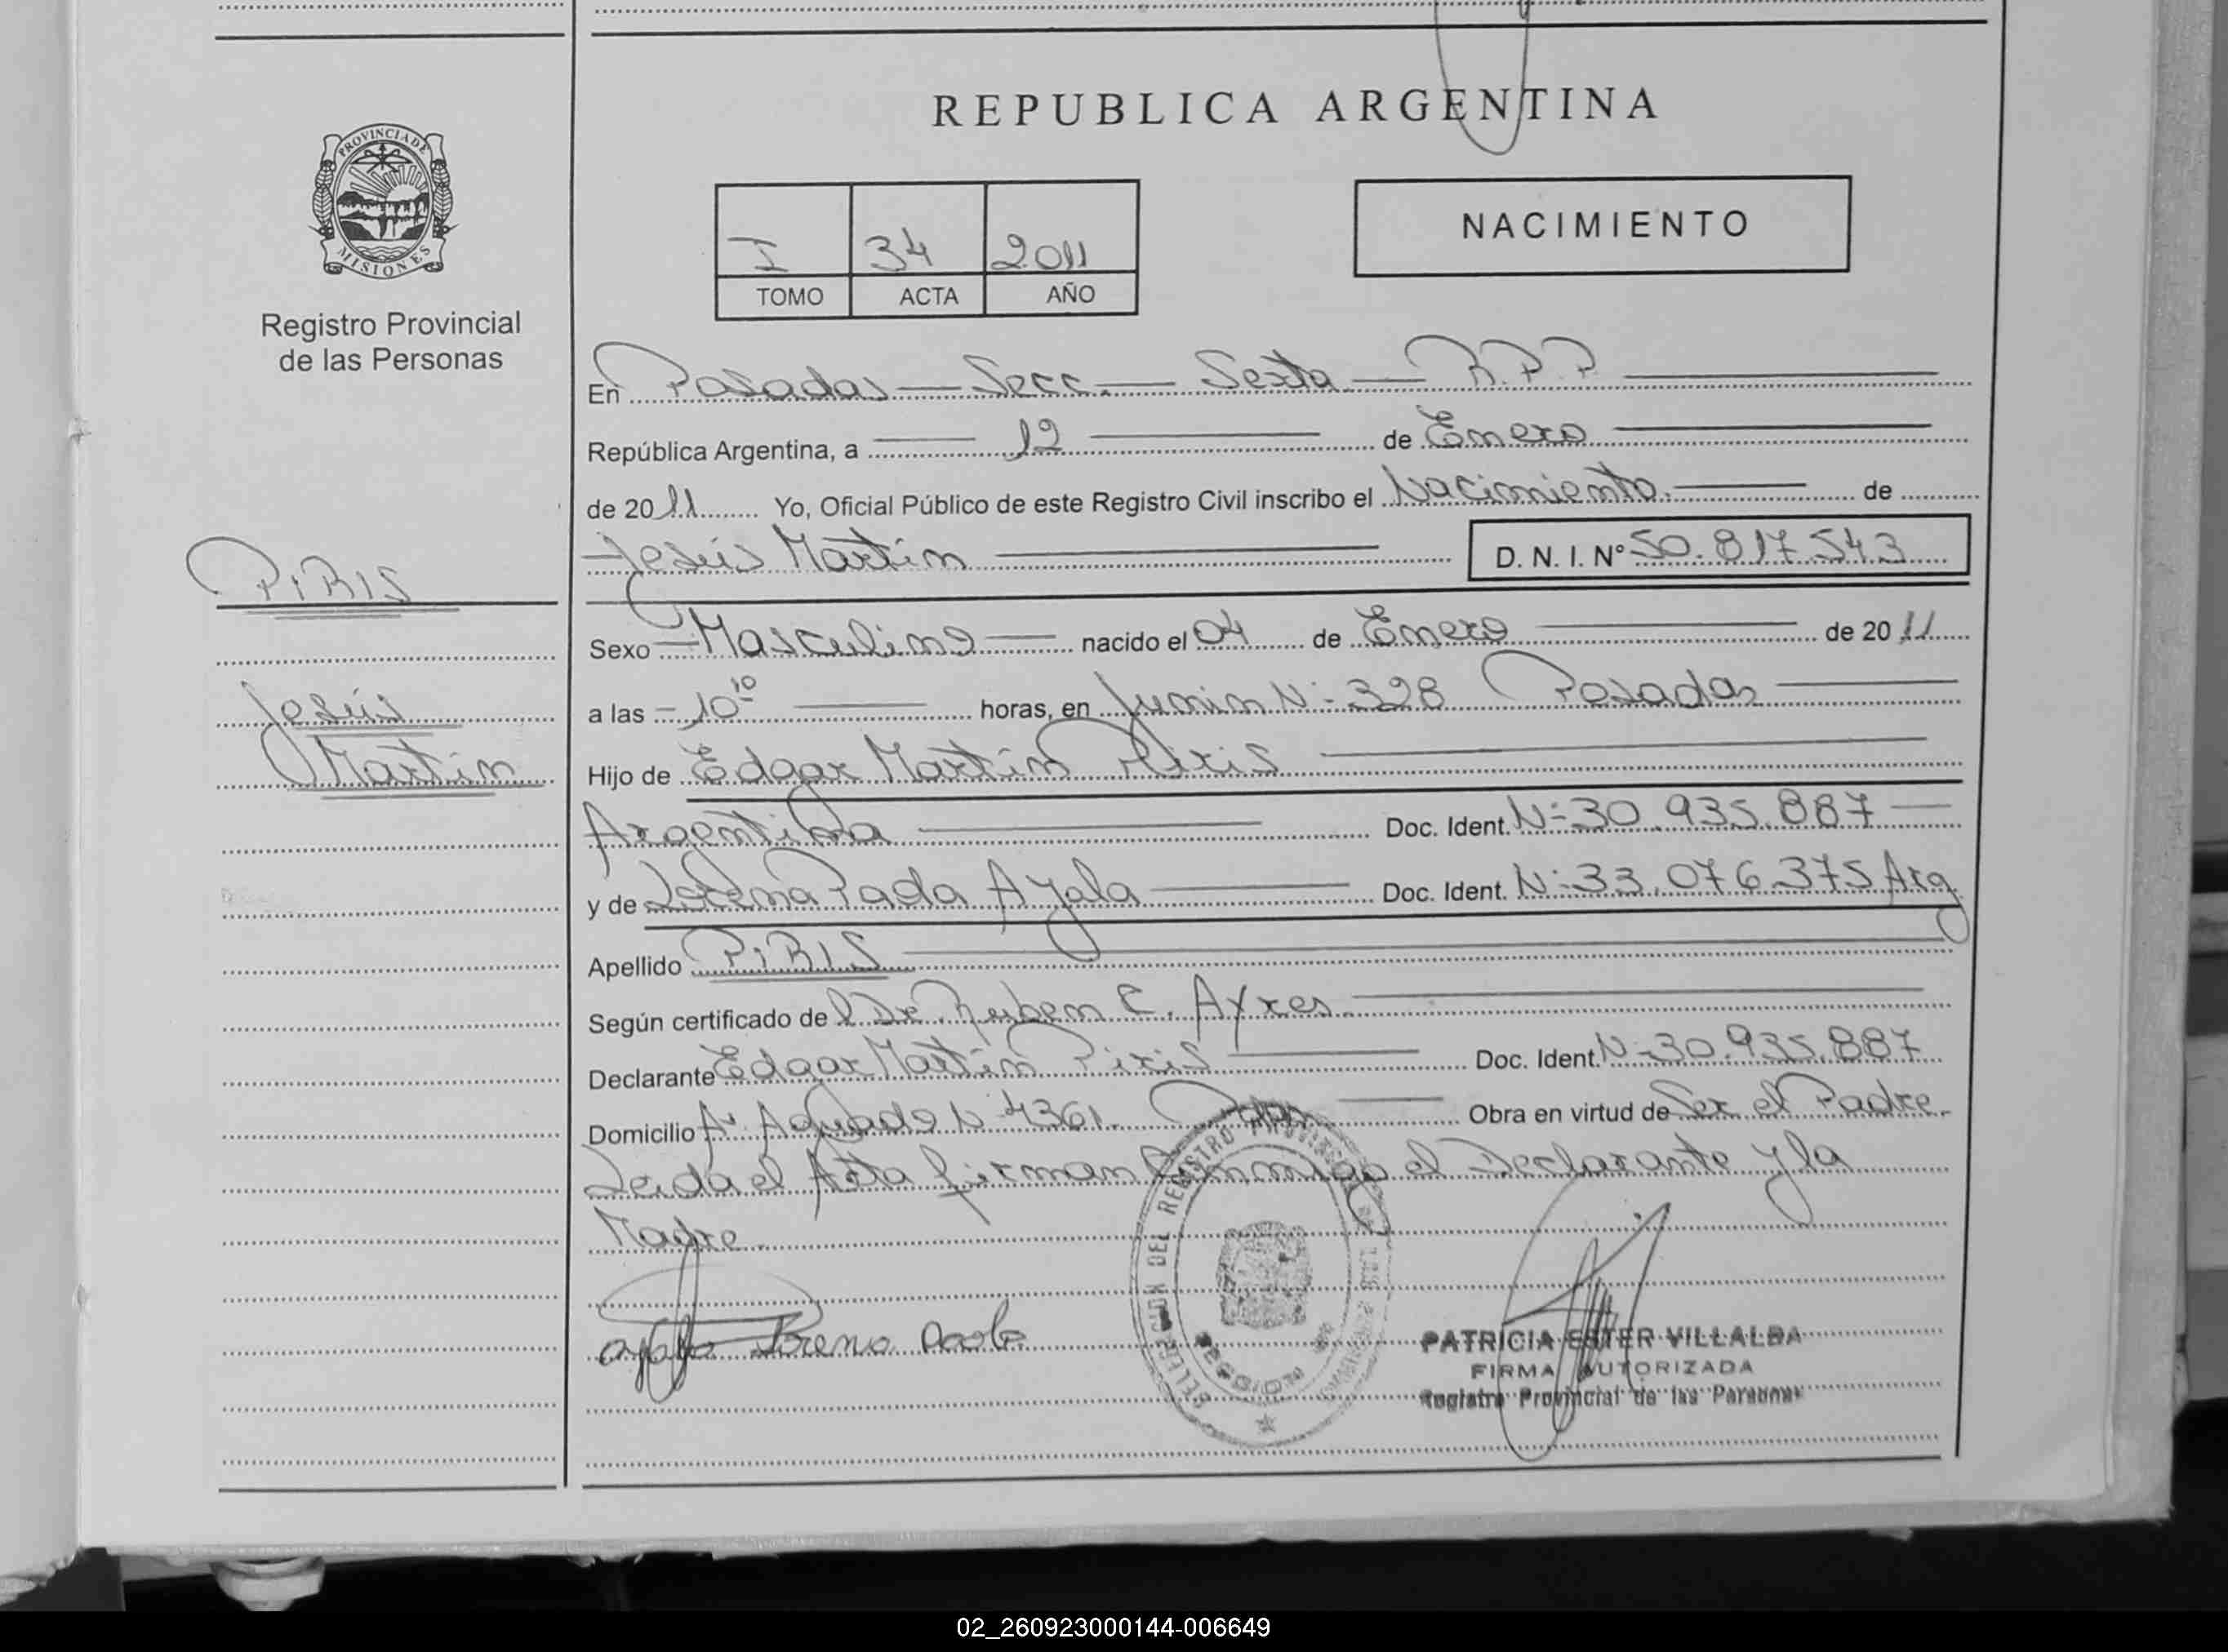 REPUBLICA ARGENTINA
PROVINCIA DE
MISIONES
Registro Provincial
de las Personas
I 34 2011
TOMO ACTA AÑO
NACIMIENTO
En Posadas — Secc. — Sexta — R.P.P.
República Argentina, a 12 de Enero
de 2011 Yo, Oficial Público de este Registro Civil inscribo el Nacimiento. de
Jesús Martín D. N. I. Nº 50.817.543
PiRIS
Jesús
Martín
Sexo Masculino nacido el 04 de Enero de 2011
a las 10 10 horas, en Junin Nº 328 Posadas
Hijo de Edgar Martín Piris
Argentina Doc. Ident. Nº 30.935.887
y de Lorena Paola Ayala Doc. Ident. Nº 33.076.375 Arg
Apellido PiRIS
Según certificado de l Dr. Ruben C. Ayres
Declarante Edgar Martín Piris Doc. Ident. Nº 30.935.887
Domicilio Aº Aguado Nº 4361. Obra en virtud de Ser el Padre.
Leida el Acta firman conmigo el Declarante y la
Madre.
Ayala Lorena Paola
DELEGACION DEL REGISTRO PROVINCIAL DE LAS PERSONAS
PATRICIA ESTER VILLALBA
FIRMA AUTORIZADA
Registro Provincial de las Personas
02_260923000144-006649